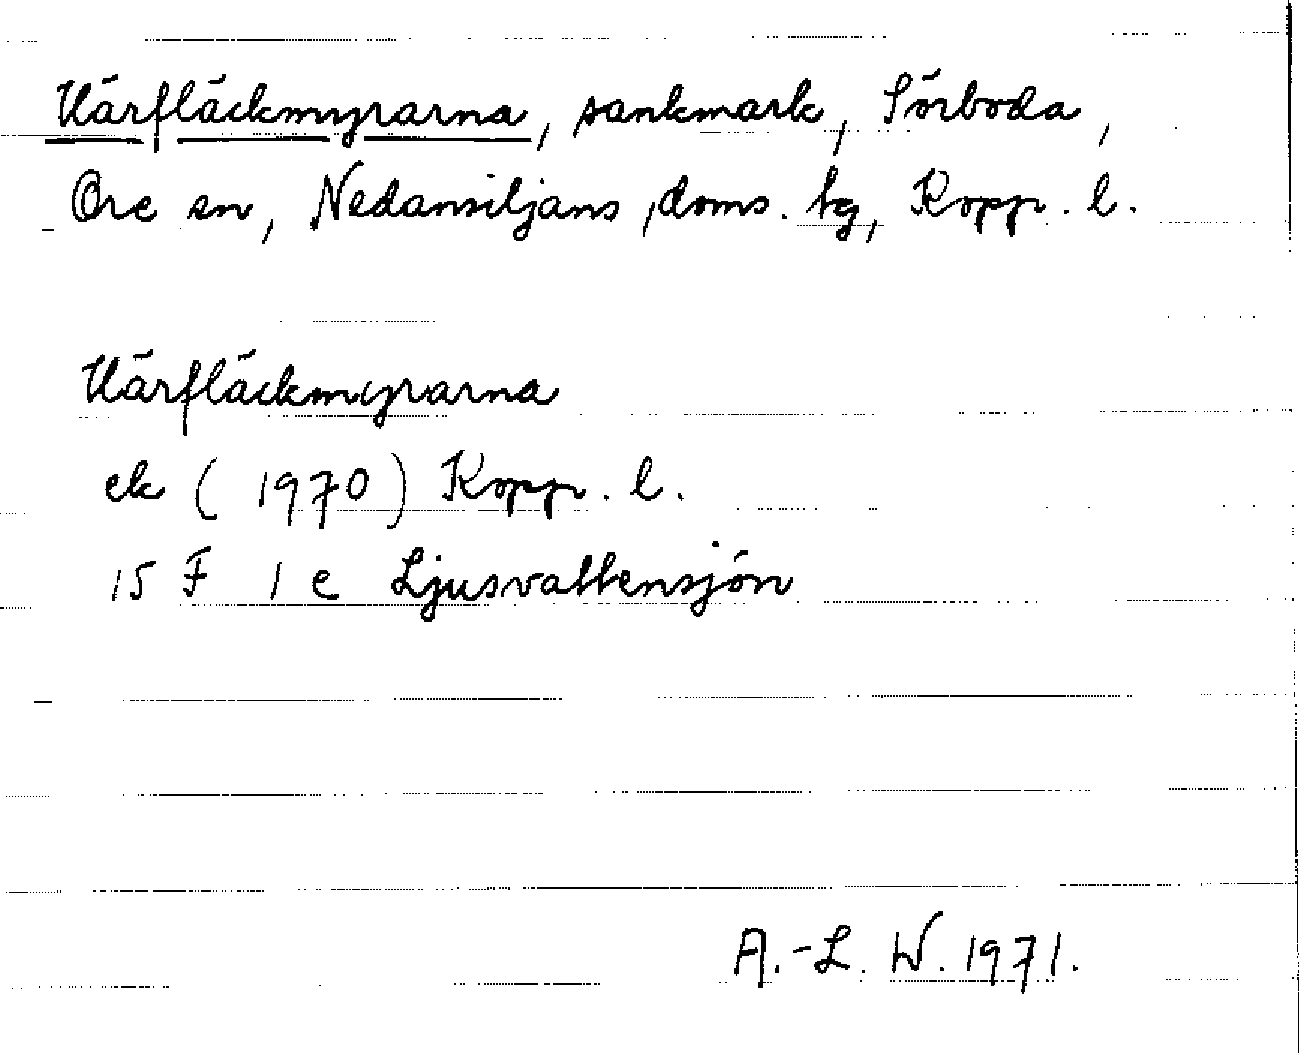 Härfläckmyrarna, sankmark, Sörboda,
Ore sn, Nedansiljans, doms. tg, Kopp. l.
Härfläckmyrarna
ek (1970) Kopp. l.
15 F 1 e Ljusvattensjön
A.-L. W. 1971.